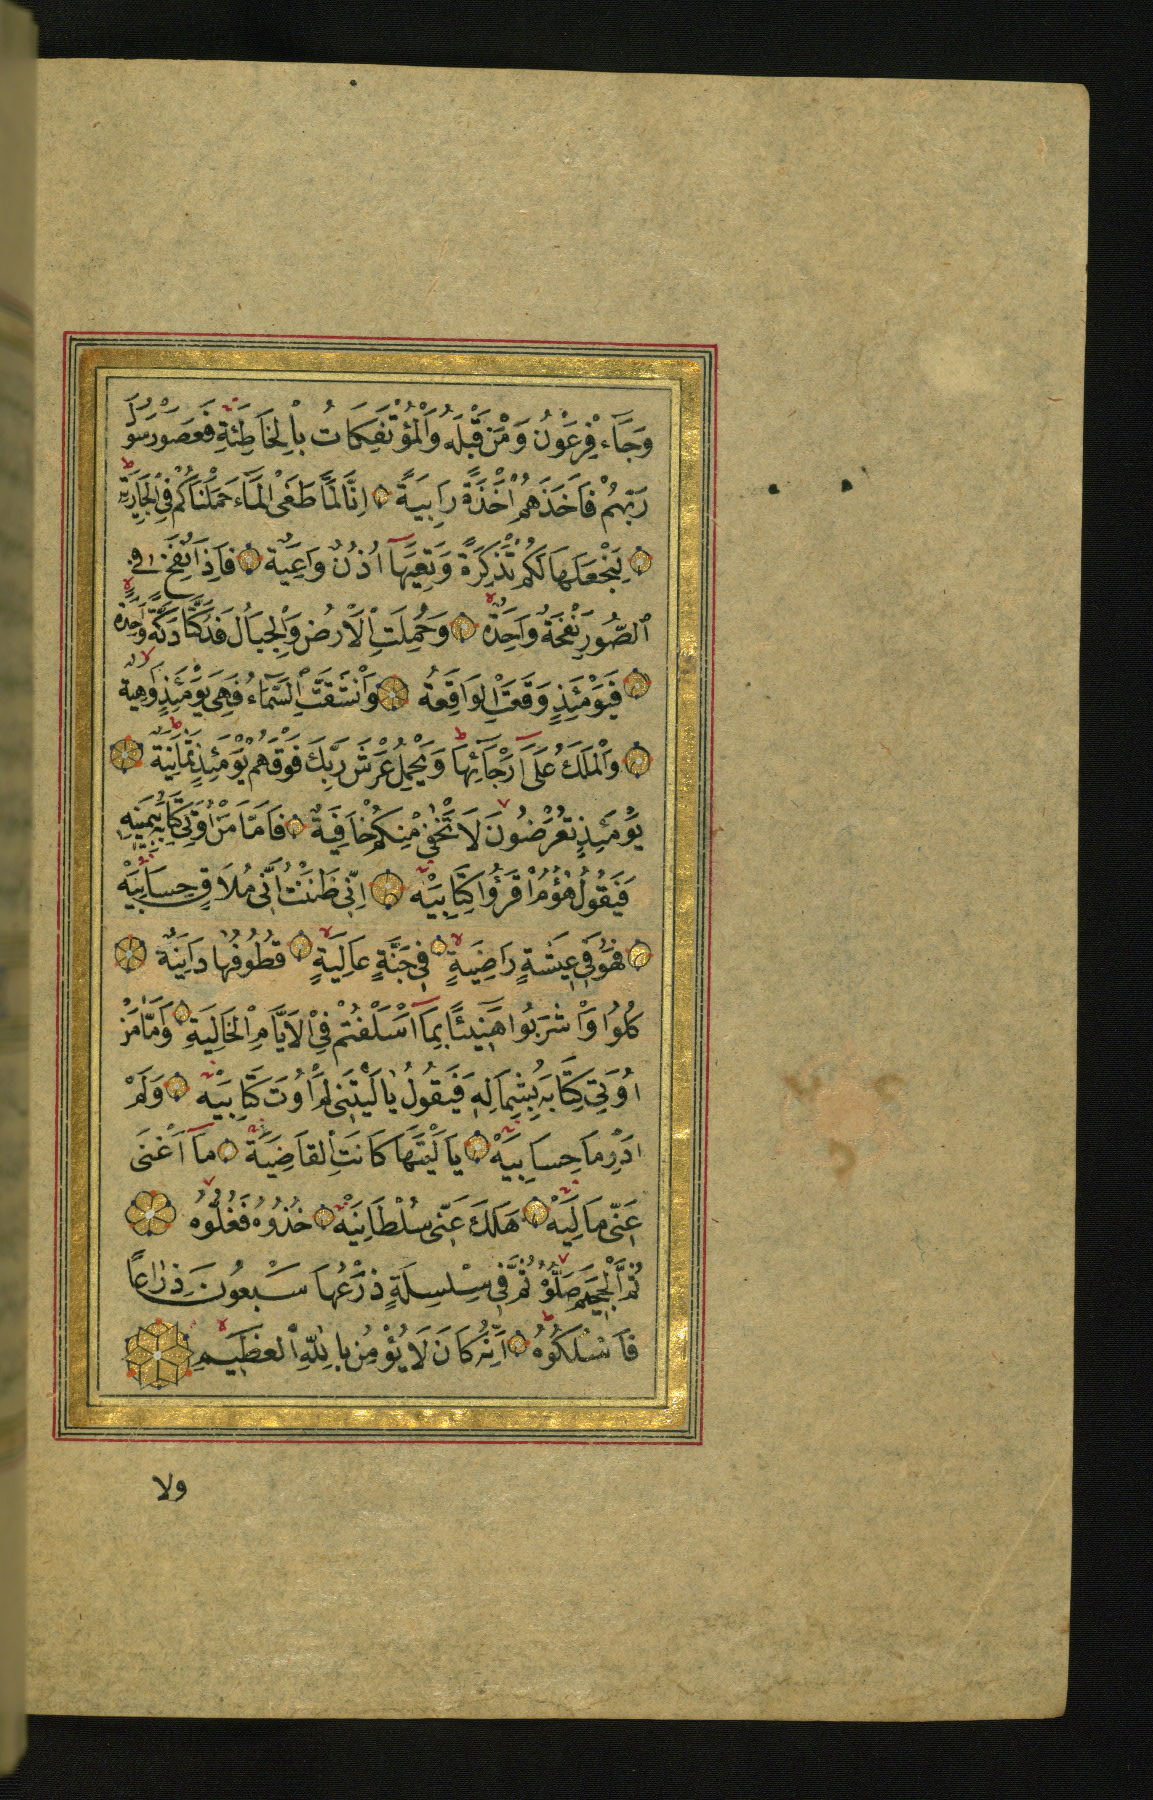 وَجَاءَ فِرْعَوْنُ وَمَنْ قَبْلَهُ وَالْمُؤْتَفِكَاتُ بِالْخَاطِئَةِ فَعَصَوْا رَسُولَ
رَبِّهِمْ فَاَخَذَهُمْ اَخْذَةً رَابِيَةً اِنَّا لَمَّا طَغَى الْمَاءُ حَمَلْنَاكُمْ فِي الْجَارِيَةِ
لِنَجْعَلَهَا لَكُمْ تَذْكِرَةً وَتَعِيَهَا اُذُنٌ وَاعِيَةٌ فَاِذَا نُفِخَ فِي
الصُّورِ نَفْخَةٌ وَاحِدَةٌ وَحُمِلَتِ الْاَرْضُ وَالْجِبَالُ فَدُكَّتَا دَكَّةً وَاحِدَةً
فَيَوْمَئِذٍ وَقَعَتِ الْوَاقِعَةُ وَانْشَقَّتِ السَّمَاءُ فَهِيَ يَوْمَئِذٍ وَاهِيَةٌ
وَالْمَلَكُ عَلَى اَرْجَائِهَا وَيَحْمِلُ عَرْشَ رَبِّكَ فَوْقَهُمْ يَوْمَئِذٍ ثَمَانِيَةٌ
يَوْمَئِذٍ تُعْرَضُونَ لَا تَخْفَى مِنْكُمْ خَافِيَةٌ فَاَمَّا مَنْ اُوتِيَ كِتَابَهُ بِيَمِينِهِ
فَيَقُولُ هَاؤُمُ اقْرَؤُا كِتَابِيَهْ اِنِّي ظَنَنْتُ اَنِّي مُلَاقٍ حِسَابِيَهْ
فَهُوَ فِي عِيشَةٍ رَاضِيَةٍ فِي جَنَّةٍ عَالِيَةٍ قُطُوفُهَا دَانِيَةٌ
كُلُوا وَاشْرَبُوا هَنِيئًا بِمَا اَسْلَفْتُمْ فِي الْاَيَّامِ الْخَالِيَةِ وَاَمَّا مَنْ
اُوتِيَ كِتَابَهُ بِشِمَالِهِ فَيَقُولُ يَالَيْتَنِي لَمْ اُوتَ كِتَابِيَهْ وَلَمْ
اَدْرِ مَا حِسَابِيَهْ يَالَيْتَهَا كَانَتِ الْقَاضِيَةَ مَا اَغْنَى
عَنِّي مَالِيَهْ هَلَكَ عَنِّي سُلْطَانِيَهْ خُذُوهُ فَغُلُّوهُ
ثُمَّ الْجَحِيمَ صَلُّوهُ ثُمَّ فِي سِلْسِلَةٍ ذَرْعُهَا سَبْعُونَ ذِرَاعًا
فَاسْلُكُوهُ اِنَّهُ كَانَ لَا يُؤْمِنُ بِاللّٰهِ الْعَظِيمِ
ولا